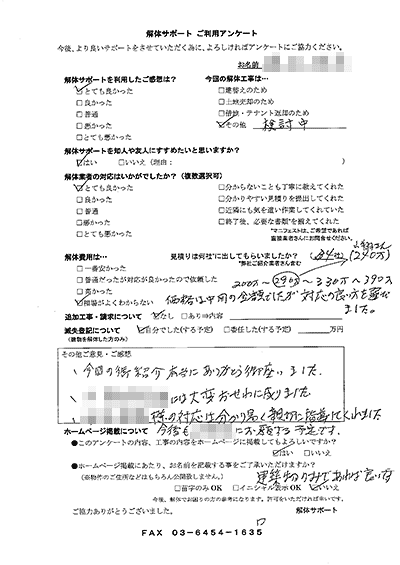 解体サポート ご利用アンケート
今後、より良いサポートをさせていただく為に、よろしければアンケートにご協力ください。
お名前
解体サポートを利用したご感想は？
☑とても良かった
□良かった
□普通
□悪かった
□とても悪かった
今回の解体工事は…
□建替えのため
□土地売却のため
□借地・テナント返却のため
☑その他 検討中
解体サポートを知人や友人にすすめたいと思いますか？
☑はい □いいえ（理由： ）
解体業者の対応はいかがでしたか？（複数選択可）
☑とても良かった
□良かった
□普通
□悪かった
□とても悪かった
□分からないことも丁寧に教えてくれた
□分かりやすい見積りを提出してくれた
□近隣にも気を遣い作業してくれていた
□終了後、必要な書類*を揃えてくれた
*マニフェストは、ご希望であれば
直接業者さんにお問合せください。
解体費用は…
□一番安かった
□普通だったが対応が良かったので依頼した
□高かった
☑相場がよくわからない
見積りは何社*に出してもらいましたか？
*弊社ご紹介業者さん含む
(240万)
200万〜290万〜330万〜390万
価格は中間の金額でしたが対応の良い方を選び
ました。
追加工事・請求について ☑なし □あり⇒内容
滅失登記について ☑自分でした(する予定) □委任した(する予定) 万円
(建物を解体した方のみ)
その他ご意見・ご感想
、今回の御紹介本当にありがとう御座いました。
、には大変おせわに成りました
、様の対応は分かり易く親切に指導してくれました
今後もにお願する予定です。
ホームページ掲載について
●このアンケートの内容、工事の内容をホームページに掲載してもよろしいですか？
☑はい □いいえ
●ホームページ掲載にあたり、お名前を記載する事をご了承いただけますか？
(※物件のご住所などはもちろん公開致しません。)
建築物のみであれば良い方
□苗字のみOK □イニシャル表示OK ☑いいえ
今後、解体でお困りの方の参考になります。許可をいただければ幸いです。
ご協力ありがとうございました。 解体サポート
FAX 03-6454-1635